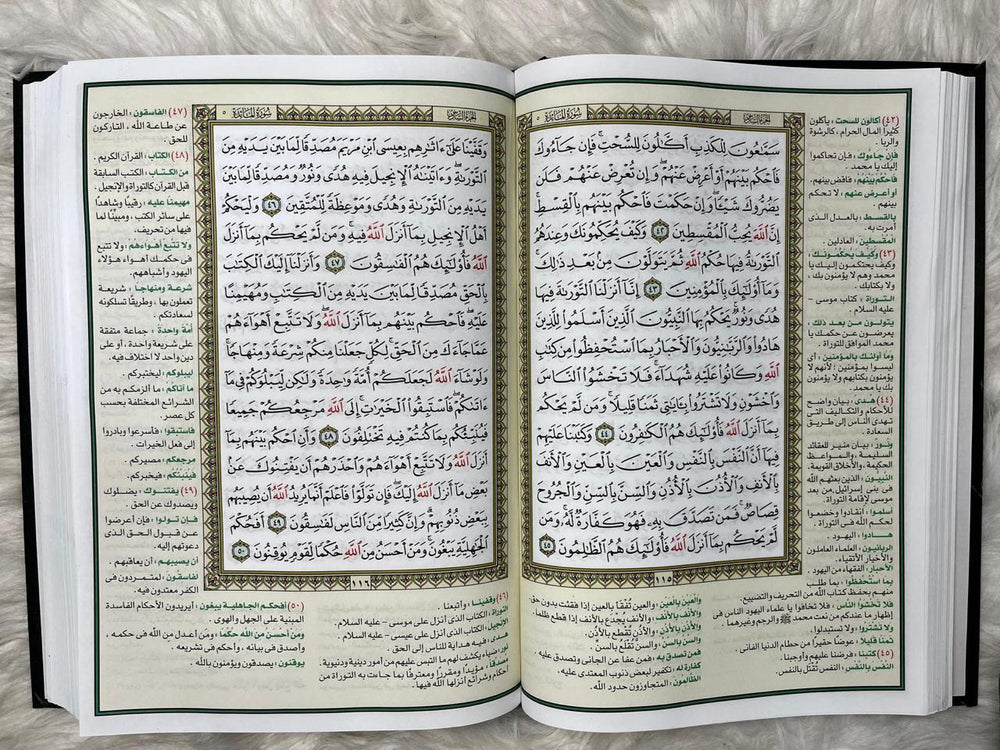 الجزء السادس
سورة المائدة
٥
سَمَّٰعُونَ لِلْكَذِبِ أَكَّٰلُونَ لِلسُّحْتِ ۚ فَإِن جَآءُوكَ
فَٱحْكُم بَيْنَهُمْ أَوْ أَعْرِضْ عَنْهُمْ ۖ وَإِن تُعْرِضْ عَنْهُمْ فَلَن
يَضُرُّوكَ شَيْـًٔا ۖ وَإِنْ حَكَمْتَ فَٱحْكُم بَيْنَهُم بِٱلْقِسْطِ ۚ
إِنَّ ٱللَّهَ يُحِبُّ ٱلْمُقْسِطِينَ ٤٢ وَكَيْفَ يُحَكِّمُونَكَ وَعِندَهُمُ
ٱلتَّوْرَىٰةُ فِيهَا حُكْمُ ٱللَّهِ ثُمَّ يَتَوَلَّوْنَ مِنۢ بَعْدِ ذَٰلِكَ ۚ
وَمَآ أُو۟لَٰٓئِكَ بِٱلْمُؤْمِنِينَ ٤٣ إِنَّآ أَنزَلْنَا ٱلتَّوْرَىٰةَ فِيهَا
هُدًى وَنُورٌ ۚ يَحْكُمُ بِهَا ٱلنَّبِيُّونَ ٱلَّذِينَ أَسْلَمُوا۟ لِلَّذِينَ
هَادُوا۟ وَٱلرَّبَّٰنِيُّونَ وَٱلْأَحْبَارُ بِمَا ٱسْتُحْفِظُوا۟ مِن كِتَٰبِ
ٱللَّهِ وَكَانُوا۟ عَلَيْهِ شُهَدَآءَ ۚ فَلَا تَخْشَوُا۟ ٱلنَّاسَ
وَٱخْشَوْنِ وَلَا تَشْتَرُوا۟ بِـَٔايَٰتِى ثَمَنًا قَلِيلًا ۚ وَمَن لَّمْ يَحْكُم
بِمَآ أَنزَلَ ٱللَّهُ فَأُو۟لَٰٓئِكَ هُمُ ٱلْكَٰفِرُونَ ٤٤ وَكَتَبْنَا عَلَيْهِمْ
فِيهَآ أَنَّ ٱلنَّفْسَ بِٱلنَّفْسِ وَٱلْعَيْنَ بِٱلْعَيْنِ وَٱلْأَنفَ
بِٱلْأَنفِ وَٱلْأُذُنَ بِٱلْأُذُنِ وَٱلسِّنَّ بِٱلسِّنِّ وَٱلْجُرُوحَ
قِصَاصٌ ۚ فَمَن تَصَدَّقَ بِهِۦ فَهُوَ كَفَّارَةٌ لَّهُۥ ۚ وَمَن
لَّمْ يَحْكُم بِمَآ أَنزَلَ ٱللَّهُ فَأُو۟لَٰٓئِكَ هُمُ ٱلظَّٰلِمُونَ ٤٥
١١٥
(٤٢) أكالون للسحت : يأكلون
كثيرا المال الحرام ، كالرشوة
والربا .
فإن جاءوك : فإن تحاكموا
إليك يا محمد .
فاحكم بينهم : فاقض بينهم .
أو أعرض عنهم : ولا تحكم
بينهم .
بالقسط : بالعدل الذى
أمرت به .
المقسطين : العادلين .
(٤٣) وكيف يحكمونك :
وكيف يحتكمون إليك يا
محمد وهم لا يؤمنون بك ،
ولا بكتابك .
التوراة : كتاب موسى -
عليه السلام .
يتولون من بعد ذلك :
يعرضون عن حكمك يا
محمد الموافق للتوراة .
وما أولئك بالمؤمنين : أى
ليسوا بمؤمنين ؛ لأنهم لا
يؤمنون بكتابهم ولا يؤمنون
بك يا محمد .
(٤٤) هدى : بيان واضح
للأحكام والتكاليف التى
تهدى الناس إلى طريق
السعادة .
ونور : بيان منير للعقائد
السليمة ، والمواعظ
الحكيمة ، والأخلاق القويمة .
النبيون : الذين بعثهم الله
فى بنى إسرائيل من بعد
موسى لإقامة التوراة .
أسلموا : انقادوا وخضعوا
لحكم الله فى التوراة .
هادوا : اليهود .
الربانيون : العلماء العاملون
والأخيار الأتقياء
الأحبار : الفقهاء من اليهود .
بما استحفظوا : بما طلب
منهم بحفظ كتاب الله من التحريف والتضييع .
فلا تخشوا الناس : فلا تخافوا يا علماء اليهود الناس فى
إظهار ما عندكم من نعت محمد ﷺ والرجم وغيرهما .
ولا تشتروا : ولا تستبدلوا .
ثمنا قليلا : عوضا حقيرا من حطام الدنيا الفانى .
(٤٥) كتبنا : فرضنا عليهم وأوجبنا .
النفس بالنفس : النفس تقتل بالنفس .
والعين بالعين : والعين تفقأ بالعين إذا فقئت بدون حق .
والأنف بالأنف : والأنف يجدع بالأنف إذا قطع ظلما .
والأذن بالأذن : والأذن تقطع بالأذن .
والسن بالسن : والسن تقلع بالسن .
فمن تصدق به : فمن عفا عن الجانى وتصدق عليه .
كفارة له : تكفير لبعض ذنوب المعتدى عليه .
الظالمون : المتجاوزون حدود الله .
الجزء السادس
سورة المائدة
٥
وَقَفَّيْنَا عَلَىٰٓ ءَاثَٰرِهِم بِعِيسَى ٱبْنِ مَرْيَمَ مُصَدِّقًا لِّمَا بَيْنَ يَدَيْهِ مِنَ
ٱلتَّوْرَىٰةِ ۖ وَءَاتَيْنَٰهُ ٱلْإِنجِيلَ فِيهِ هُدًى وَنُورٌ وَمُصَدِّقًا لِّمَا بَيْنَ
يَدَيْهِ مِنَ ٱلتَّوْرَىٰةِ وَهُدًى وَمَوْعِظَةً لِّلْمُتَّقِينَ ٤٦ وَلْيَحْكُمْ
أَهْلُ ٱلْإِنجِيلِ بِمَآ أَنزَلَ ٱللَّهُ فِيهِ ۚ وَمَن لَّمْ يَحْكُم بِمَآ أَنزَلَ
ٱللَّهُ فَأُو۟لَٰٓئِكَ هُمُ ٱلْفَٰسِقُونَ ٤٧ وَأَنزَلْنَآ إِلَيْكَ ٱلْكِتَٰبَ
بِٱلْحَقِّ مُصَدِّقًا لِّمَا بَيْنَ يَدَيْهِ مِنَ ٱلْكِتَٰبِ وَمُهَيْمِنًا
عَلَيْهِ ۖ فَٱحْكُم بَيْنَهُم بِمَآ أَنزَلَ ٱللَّهُ ۖ وَلَا تَتَّبِعْ أَهْوَآءَهُمْ
عَمَّا جَآءَكَ مِنَ ٱلْحَقِّ ۚ لِكُلٍّ جَعَلْنَا مِنكُمْ شِرْعَةً وَمِنْهَاجًا ۚ
وَلَوْ شَآءَ ٱللَّهُ لَجَعَلَكُمْ أُمَّةً وَٰحِدَةً وَلَٰكِن لِّيَبْلُوَكُمْ فِى مَآ
ءَاتَىٰكُمْ ۖ فَٱسْتَبِقُوا۟ ٱلْخَيْرَٰتِ ۚ إِلَى ٱللَّهِ مَرْجِعُكُمْ جَمِيعًا
فَيُنَبِّئُكُم بِمَا كُنتُمْ فِيهِ تَخْتَلِفُونَ ٤٨ وَأَنِ ٱحْكُم بَيْنَهُم بِمَآ
أَنزَلَ ٱللَّهُ وَلَا تَتَّبِعْ أَهْوَآءَهُمْ وَٱحْذَرْهُمْ أَن يَفْتِنُوكَ عَنۢ
بَعْضِ مَآ أَنزَلَ ٱللَّهُ إِلَيْكَ ۖ فَإِن تَوَلَّوْا۟ فَٱعْلَمْ أَنَّمَا يُرِيدُ ٱللَّهُ أَن يُصِيبَهُم
بِبَعْضِ ذُنُوبِهِمْ ۗ وَإِنَّ كَثِيرًا مِّنَ ٱلنَّاسِ لَفَٰسِقُونَ ٤٩ أَفَحُكْمَ
ٱلْجَٰهِلِيَّةِ يَبْغُونَ ۚ وَمَنْ أَحْسَنُ مِنَ ٱللَّهِ حُكْمًا لِّقَوْمٍ يُوقِنُونَ ٥٠
١١٦
(٤٦) وقفينا : وأتبعنا .
التوراة : الكتاب الذى أنزل على موسى - عليه السلام .
الإنجيل : الكتاب الذى أنزل على عيسى - عليه السلام .
هدى : فيه هداية للناس إلى الحق .
نور : ضياء يكشف لهم ما التبس عليهم من أمور دينية ودنيوية .
مصدقا : مؤيدا ومقررا ومعترفا بما جاءت به التوراة من
أحكام وشرائع أنزلها الله فيها .
(٤٧) الفاسقون : الخارجون
عن طاعة الله ، التاركون
للحق .
(٤٨) الكتاب : القرآن الكريم .
من الكتاب : الكتب السابقة
قبل القرآن كالتوراة والإنجيل .
مهيمنا عليه : رقيبا وشاهدا
على سائر الكتب ومبينا لما
فيها من تحريف .
ولا تتبع أهواءهم : ولا تتبع
فى حكمك أهواء هؤلاء
اليهود وأشباههم .
شرعة ومنهاجا : شريعة
تعملون بها ، وطريقا تسلكونه
لسعادتكم .
أمة واحدة : جماعة متفقة
على شريعة واحدة ، أو على
دين واحد لا اختلاف فيه .
ليبلوكم : ليختبركم .
ما آتاكم : ما ألزمكم به من
الشرائع المختلفة بحسب
كل عصر .
فاستبقوا : فأسرعوا وبادروا
إلى فعل الخيرات .
مرجعكم : مصيركم .
فينبئكم : فيخبركم .
(٤٩) يفتنوك : يضلوك
ويصدوك عن الحق .
فإن تولوا : فإن أعرضوا
عن قبول الحق الذى
دعوتهم إليه .
أن يصيبهم : أن يعاقبهم .
لفاسقون : لمتمردون فى
الكفر معتدون فيه .
(٥٠) أفحكم الجاهلية يبغون : أيريدون الأحكام الفاسدة
المبنية على الجهل والهوى .
ومن أحسن من الله حكما : ومن أعدل من الله فى حكمه ،
وأصدق فى بيانه ، وأحكم فى تشريعه .
يوقنون : يصدقون ويؤمنون بالله .